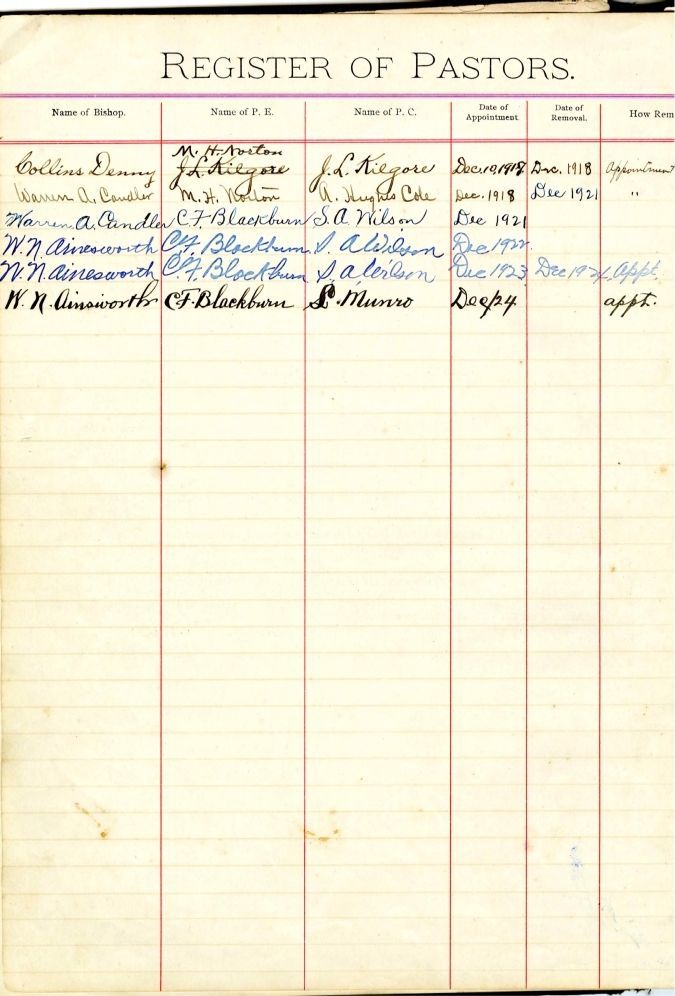 REGISTER OF PASTORS.
Name of Bishop. Name of P. E. Name of P. C. Date of Appointment. Date of Removal. How Rem
M. H. Norton
Collins Denny J. L. Kilgore J. L. Kilgore Dec. 10, 1917 Dec. 1918 Appointment
Warren A. Candler M. H. Norton A. Hughes Cole Dec. 1918 Dec 1921 "
Warren A. Candler C. F. Blackburn S. A. Wilson Dec 1921
W. N. Ainesworth C. F. Blackburn S. A. Wilson Dec 1922
W. N. Ainesworth C. F. Blackburn S. A. Wilson Dec 1923 Dec 1924 Appt.
W. N. Ainsworth C. F. Blackburn Munro Dec/24 appt.